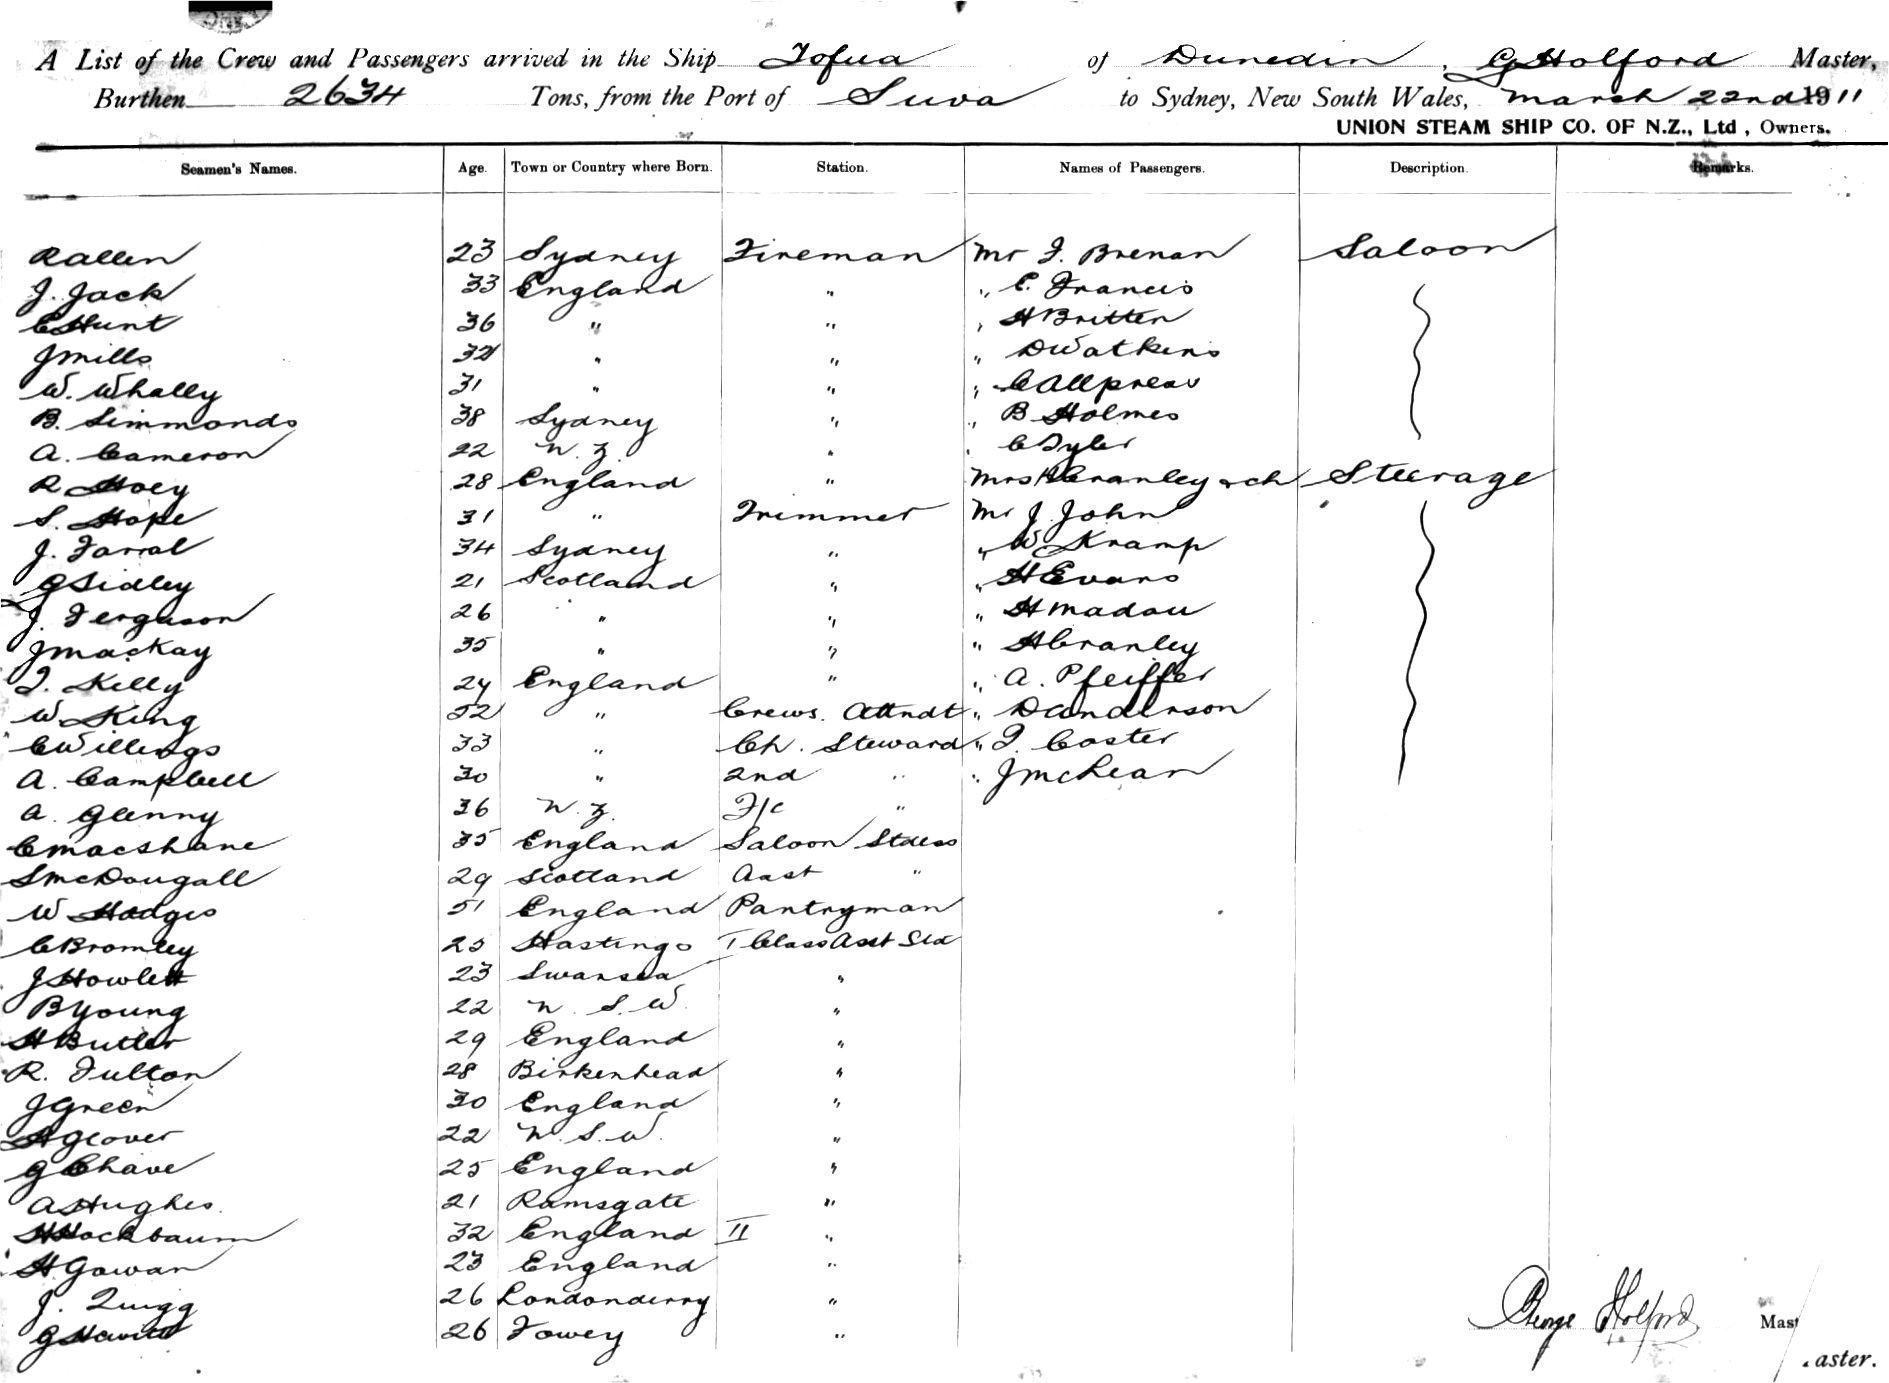 A List of the Crew and Passengers arrived in the Ship Tofua of Dunedin, G Holford Master,
Burthen 2634 Tons, from the Port of Suva to Sydney, New South Wales, March 22nd 1911
UNION STEAM SHIP CO. OF N.Z., Ltd, Owners.
Seamen's Names. Age. Town or Country where Born. Station. Names of Passengers. Description. Remarks.
R Allen 23 Sydney Fireman Mr F. Brenan Saloon
J. Jack 33 England " " C. Francis
C Hunt 36 " " " H Britten
J Mills 32 " " " D Watkins
W. Whally 31 " " "
B. Simmonds 38 Sydney " " B Holmes
A. Cameron 22 N.Z. " " C Tyler
R Hoey 28 England " Mrs Cranley & ch Steerage
S. Hope 31 " Trimmer Mr J. John
J. Farral 34 Sydney " " W Kramp
G Sidley 21 Scotland " " H Evans
J. Ferguson 26 " " " H Madau
J Mackay 35 " " " H Cranley
T. Kelly 24 England " " A. Pfeiffer
W King 52 " Crews. Attndt " D Anderson
C Willings 33 " Ch. Steward " T. Coster
A. Campbell 30 " 2nd " " J McLean
A. Glenny 36 N.Z. F/c "
C MacShane 35 England Saloon Stdess
S McDougall 29 Scotland Asst "
W Hodges 51 England Pantryman
C Bromley 25 Hastings I Class Asst Std
J Howlett 23 Swansea "
B Young 22 N.S.W. "
H Butler 29 England "
R. Fulton 28 Birkenhead "
J Green 30 England "
H Glover 22 N.S.W. "
G Chave 25 England "
A Hughes. 21 Ramsgate "
H Hockbaum 32 England II "
H Gowan 23 England "
J. Quigg 26 Londonderry "
G Hewitt 26 Fowey "
George Holford Mast
aster.